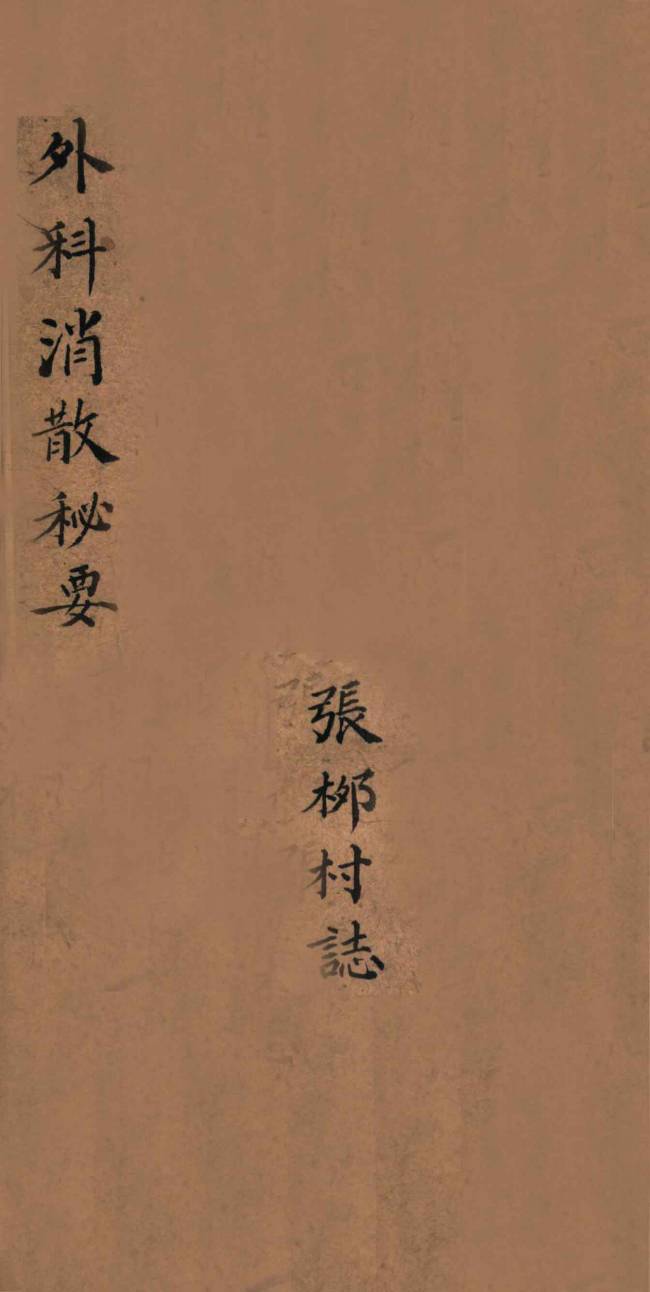 外科消散秘要
張柳村誌